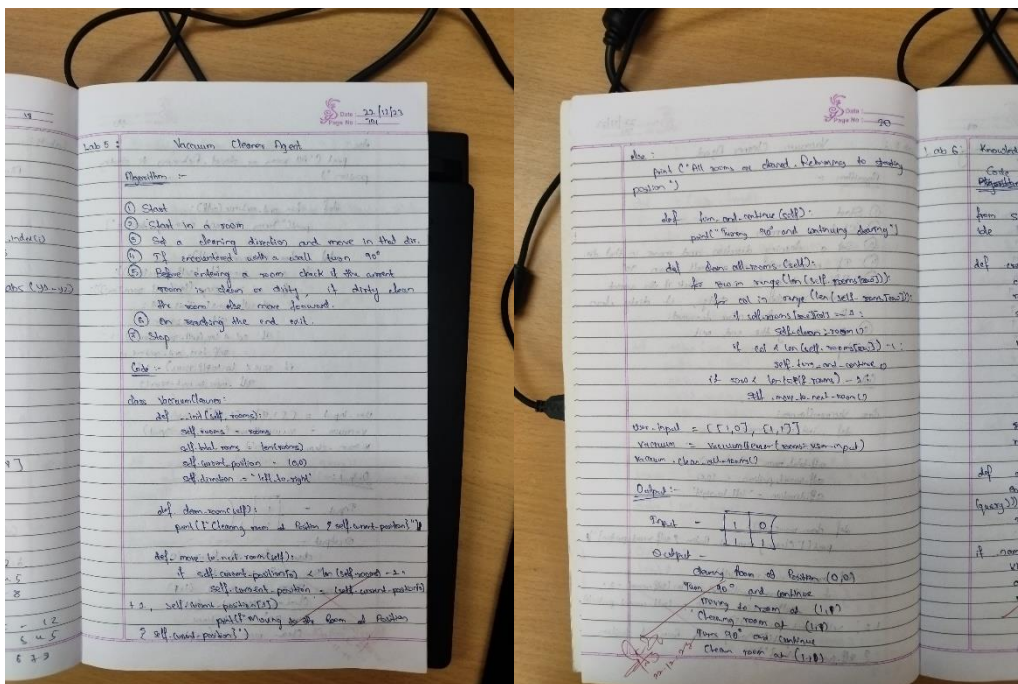 18
.index(i)
abs (y1-y2)
Date : 22/12/23
Page No :
Lab 5 : Vacuum Cleaner Agent
Algorithm :-
① Start
② Start in a room
③ Set a cleaning direction and move in that dir.
④ If encountered with a wall turn 90°
⑤ Before entering a room check if the current
room is clean or dirty, if dirty clean
the room else move forward.
⑥ On reaching the end exit.
⑦ Stop
Code :-
class VacuumCleaner:
def __init(self, rooms):
self.rooms = rooms
self.total_rooms = len(rooms)
self.current_position = (0,0)
self.direction = "left_to_right"
def clean_room(self):
print(f"Cleaning room at Position {self.current-position}")
def move_to_next_room(self):
if self.current-position[0] < len(self.rooms) - 1:
self.current_position = (self.current-position[0]
+1, self.current-position[1])
print(f"Moving to Room at Position
{self.current-position}")
Date :
Page No : 30
else :
print ("All rooms are cleaned. Returning to starting
position")
def turn_and_continue (self):
print("Turning 90° and continuing cleaning")
def clean-all-rooms (self):
for row in range(len(self.rooms)):
for col in range (len(self.rooms[row])):
if self.rooms[row][col] == 1:
self.clean_room()
if col < len(self.rooms[row]) - 1:
self.turn_and_continue()
if row < len(self.rooms) - 1:
self.move_to_next-room()
user_input = [[1,0], [1,1]]
vacuum = VacuumCleaner(rooms=user_input)
vacuum.clean_all-rooms()
Output :-
Input - 1 0
1 1
Output -
Cleaning Room at Position (0,0)
Turn 90° and continue
Moving to room at
Cleaning room at
Turns 90° and continue
Clean room at
Lab 6:
Code
def